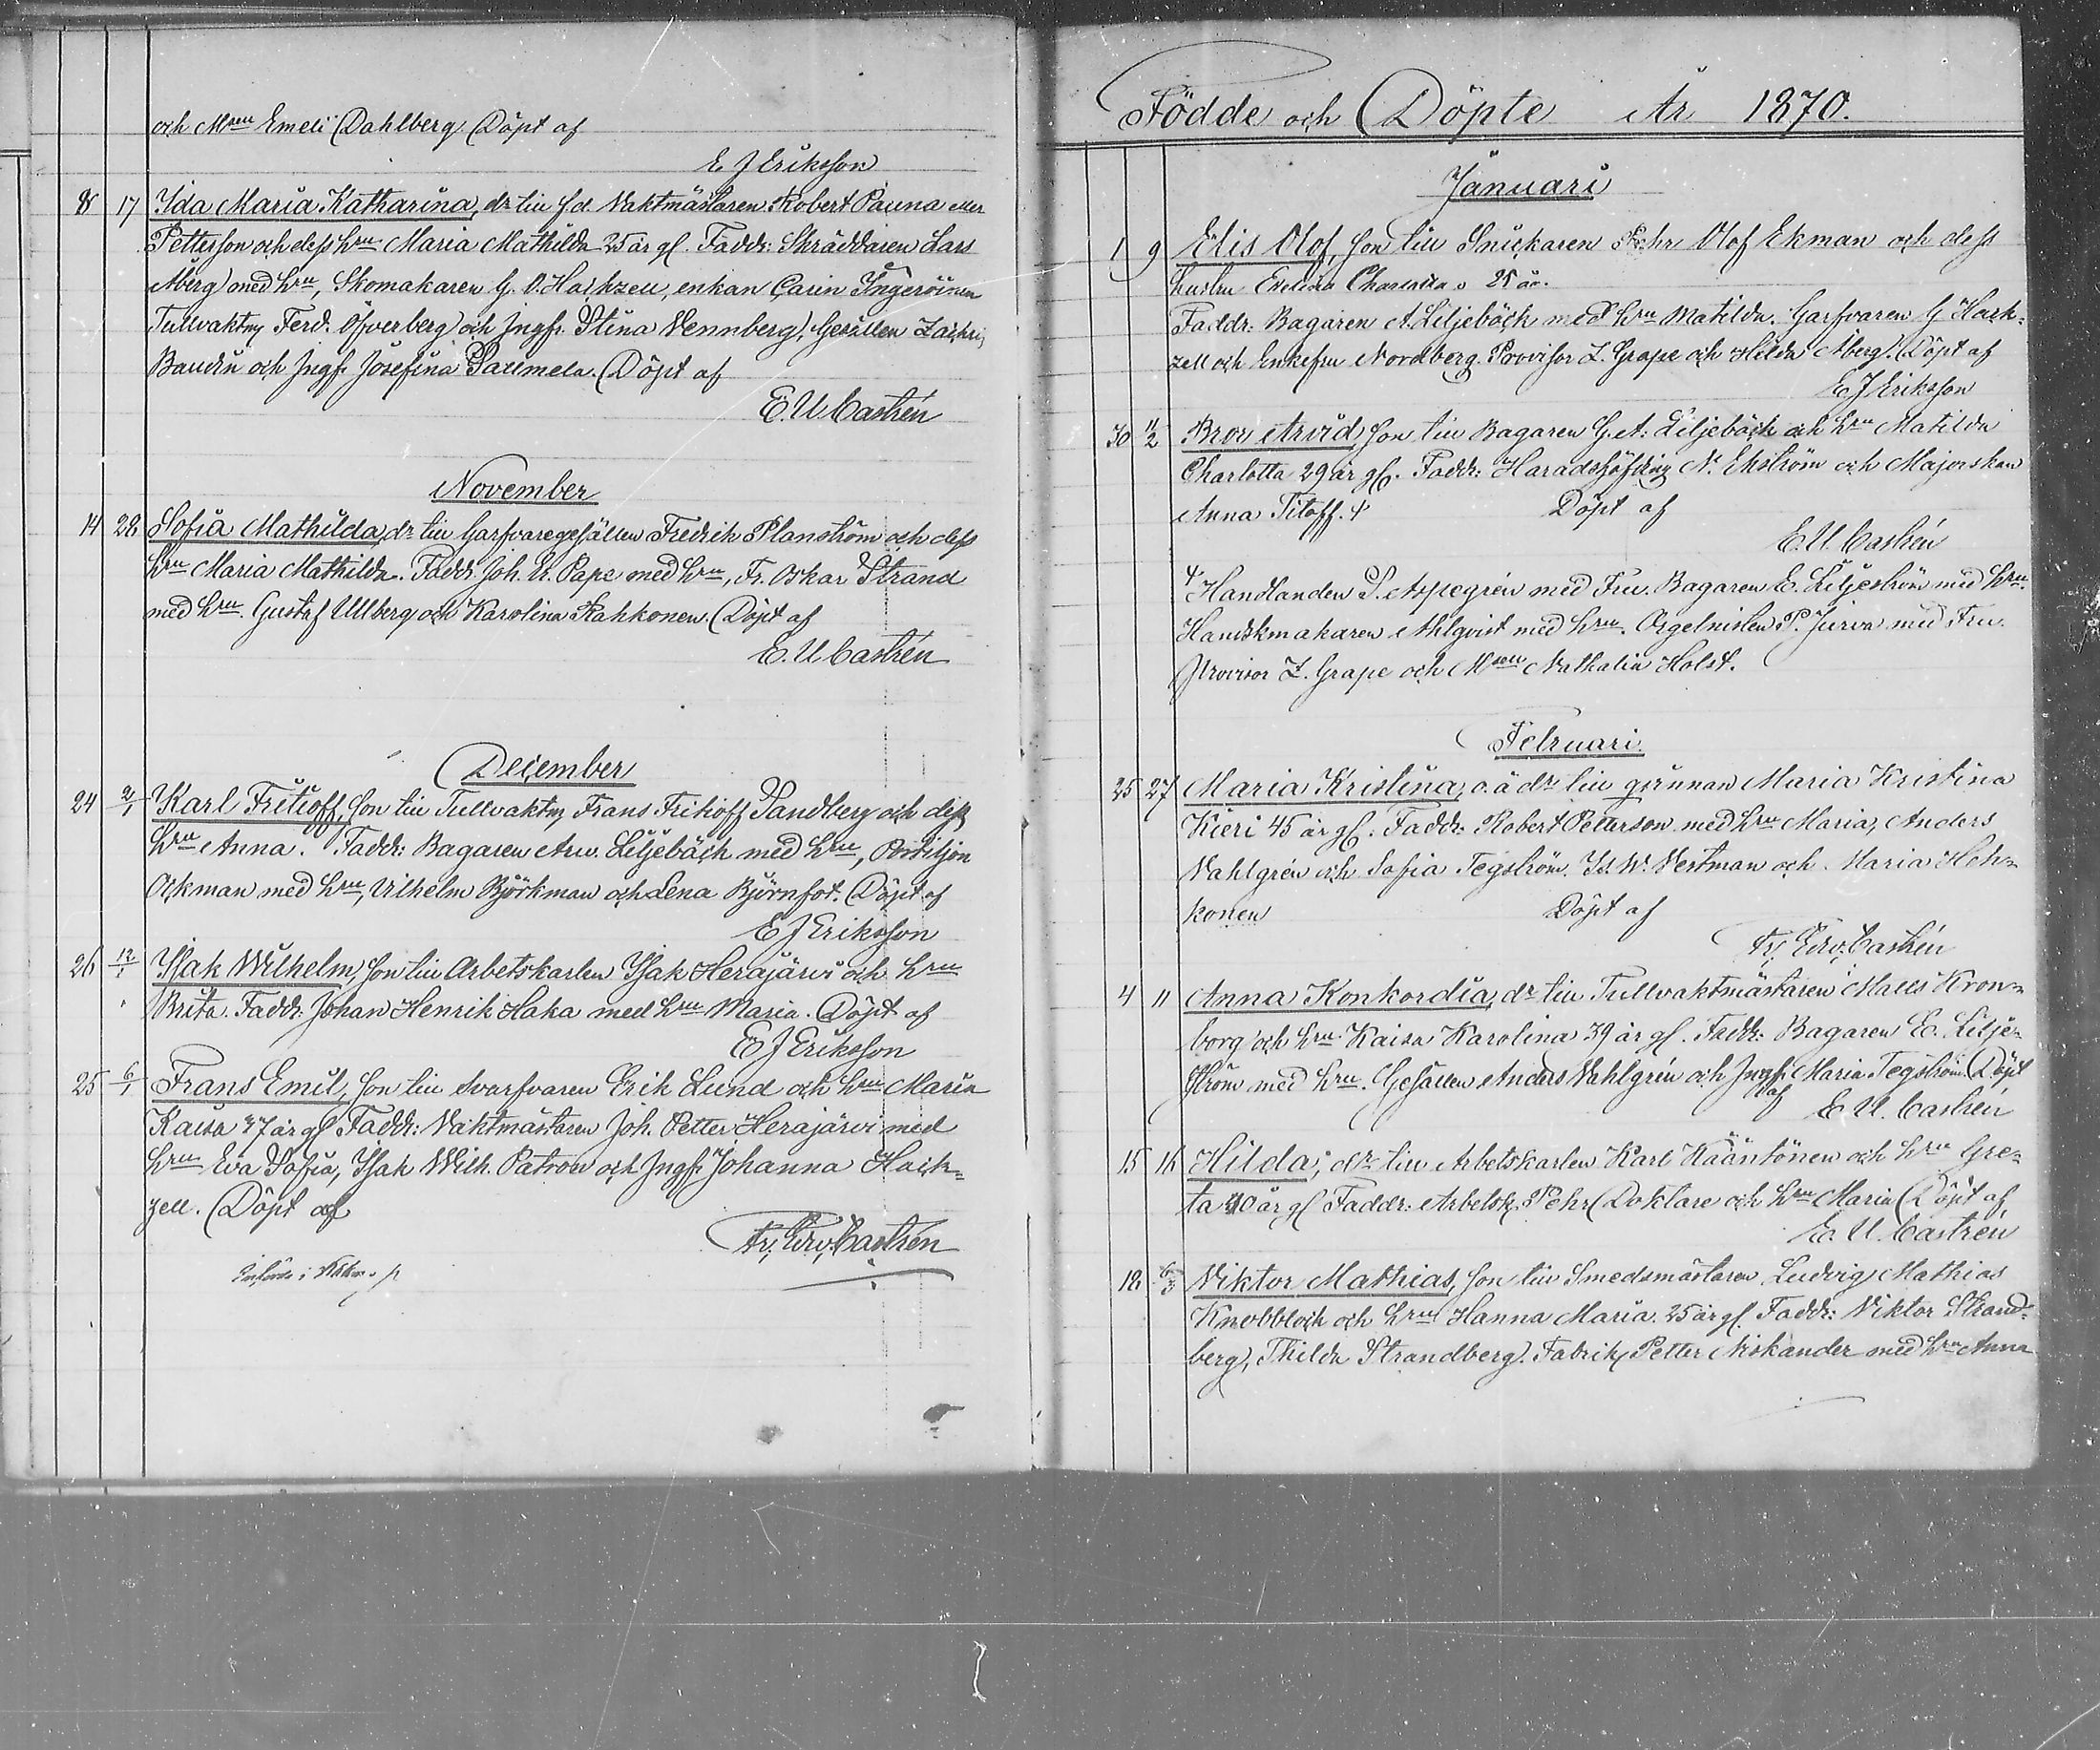 och Mllen Emeli Dahlberg. Döpt af
E J Eriksson
8 17 Ida Maria Katharina, dr till f.d. Vaktmästaren Robert Pauna eller
Pettersson och dess hru Maria Mathilda 25 år gl. Faddr: Skräddaren Lars
Åberg med hru, Skomakaren G. O. Hackzell, enkan Carin Ingeröinen
Tullvaktm Ferd. Öfverberg och Jngfr Stina Vennberg, Gesällen Zachri
Baudin och Jngfr Josefina Paumela. Döpt af
E. U. Castrén
November
14 28 Sofia Mathilda, dr till Garfvaregesällen Fredrik Planström och dess
hru Maria Mathilda. Faddr. Joh. E. Pape med hru, Fr. Oskar Strand
med hru. Gustaf Ullberg och Karolina Kahkonen. Döpt af
E. U. Castrén
December
24 2/1 Karl Fritioff, son till Tullvaktm Frans Frithioff Sandberg och dess
hru Anna. Faddr: Bagaren Aru. Liljebäck med hru,
Ackman med hru, Vilhelm Björkman och Lena Björnfot. Döpt af
E J Eriksson
26 12/1 Isak Wilhelm, son till Arbetskarlen Isak Herajärvi och hru
Brita. Faddr: Johan Henrik Haka med hru Maria. Döpt af
E J Eriksson
25 6/1 Frans Emil, son till Svarfvaren Erik Lund och hru Maria
Kaisa 37 år gl Faddr: Vaktmästaren Joh. Petter Herajärvi med
hru Eva Sofia, Isak Wilh. Patron och Jngfr Johanna Hack-
zell. Döpt af
Fr. Edv. Castrén
Födde och Döpte År 1870.
Januari
1 9 Elis Olof, son till Snickaren Pehr Olof Ekman och dess
hustru Evelina 25 år.
Faddr: Bagaren A. Liljebäck med hru Matilda. Garfvaren G Hack-
zell och Enkefru Nordberg. Provisor L. Grape och Hilda Åberg. Döpt af
E J Eriksson
30 11/2 Bror Arvid son till Bagaren G. A. Liljebäck och hru Matilda
Charlotta 29 år gl. Faddr: Häradshöfding N. Ekström och Majorskan
Anna Titoff. + Döpt af
E. U. Castrén
+ Handlanden S. Aspegrén med Fru. Bagaren E. Liljeström med hru.
Handskmakaren Ahlqvist med hru. Orgelnisten P. Jurva med Fru.
Provisor L. Grape och Msell Nathalia Holst.
Februari.
25 27 Maria Kristina, o.ä dr till qvinnan Maria Kristina
Kieri 45 år gl. Faddr: Robert Petterson med hru Maria, Anders
Vahlgrén och Sofia Tegström. Is. W. Vestman och Maria Hoh-
konen Döpt af
Fr. Edv. Castrén
4 11 Anna Konkordia, dr till Tullvaktmästaren Matts Kron-
borg och hru Kaisa Karolina 39 år gl. Faddr: Bagaren E. Lilje-
ström med hru. Gesällen Anders Vahlgrén och Jngfr Maria Tegström Döpt
af E. U. Castrén
15 16 Hilda, dr till Arbetskarlen Karl Kääntönen och hru Gre-
ta 40 år gl Faddr: Arbetsk. Pehr Doktare och hru Maria Döpt af
E. U. Castrén
18 6/3 Viktor Mathias, son till Smedsmästaren Ludvig Mathias
Knobbloch och hru Hanna Maria. 25 år gl. Faddr: Viktor Strand-
berg, Thilda Strandberg. Fabrik. Petter Niskander med hru Anna